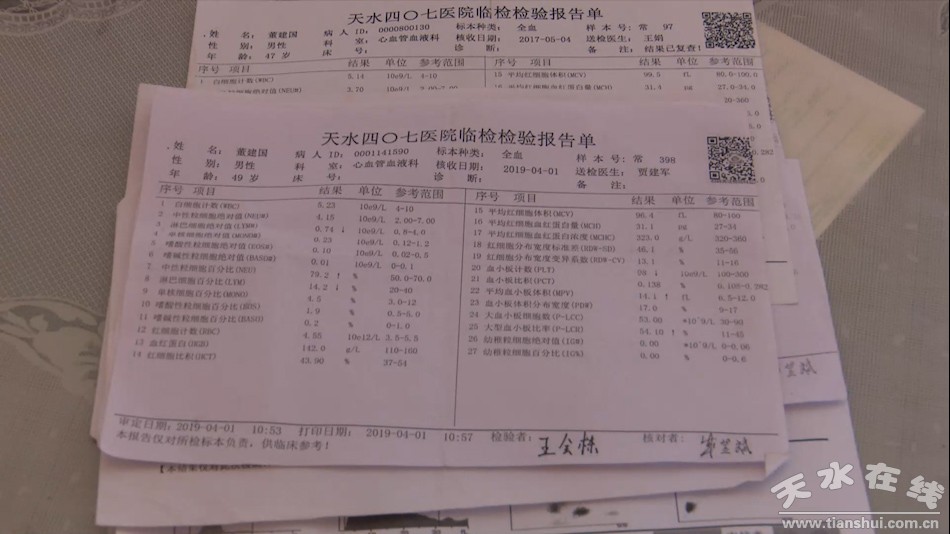 天水四〇七医院临检检验报告单
姓 名: 董建国 病 人 ID: 0000800130 标本种类: 全血 样 本 号: 常 97
性 别: 男性 科 室: 心血管血液科 核收日期: 2017-05-04 送检医生: 王娟
年 龄: 47 岁 床 号: 诊 断: 备 注: 结果已复查!
序号 项目 结果 单位 参考范围 序号 项目 结果 单位 参考范围
1 白细胞计数(WBC) 5.14 10e9/L 4-10 15 平均红细胞体积(MCV) 99.5 fL 80.0-100.0
3.70 31.4 pg 27.0-34.0
天水四〇七医院临检检验报告单
姓 名: 董建国 病 人 ID: 0001141590 标本种类: 全血 样 本 号: 常 398
性 别: 男性 科 室: 心血管血液科 核收日期: 2019-04-01 送检医生: 贾建军
年 龄: 49 岁 床 号: 诊 断: 备 注:
序号 项目 结果 单位 参考范围 序号 项目 结果 单位 参考范围
1 白细胞计数(WBC) 5.23 10e9/L 4-10 15 平均红细胞体积(MCV) 96.4 fL 80-100
2 中性粒细胞绝对值(NEUM) 4.15 10e9/L 2.00-7.00 16 平均红细胞血红蛋白量(MCH) 31.1 pg 27-34
3 淋巴细胞绝对值(LYMN) 0.74 ↓ 10e9/L 0.8-4.0 17 平均红细胞血红蛋白浓度(MCHC) 323.0 g/L 320-360
4 单核细胞绝对值(MONOM) 0.23 10e9/L 0.12-1.2 18 红细胞分布宽度标准差(RDW-SD) 46.1 fL 35-56
5 嗜酸性粒细胞绝对值(EOSM) 0.10 10e9/L 0.02-0.5 19 红细胞分布宽度变异系数(RDW-CV) 13.1 % 11-16
6 嗜碱性粒细胞绝对值(BASOM) 0.01 10e9/L 0-0.1 20 血小板计数(PLT) 10e9/L 100-300
7 中性粒细胞百分比(NEU) 79.2 ↑ % 50.0-70.0 21 血小板压积(PCT) 0.138 % 0.108-0.282
8 淋巴细胞百分比(LYM) 14.2 ↓ % 20-40 22 平均血小板体积(MPV) 14.1 ↑ fL 6.5-12.0
9 单核细胞百分比(MONO) 4.5 % 3.0-12 23 血小板体积分布宽度(PDW) 17.0 % 9-17
10 嗜酸性粒细胞百分比(EOS) 1.9 % 0.5-5.0 24 大血小板细胞数(P-LCC) 53.00 *10^9/L 30-90
11 嗜碱性粒细胞百分比(BASO) 0.2 % 0-1.0 25 大型血小板比率(P-LCR) 54.10 ↑ % 11-45
12 红细胞计数(RBC) 4.55 10e12/L 3.5-5.5 26 幼稚粒细胞绝对值(IGM) 0.00 *10^9/L 0-0.06
13 血红蛋白(HGB) 142.0 g/L 110-160 27 幼稚粒细胞百分比(IG%) 0.00 % 0-0.6
14 红细胞比积(HCT) 43.90 % 37-54
审定日期: 2019-04-01 10:53 打印日期: 2019-04-01 10:57 检验者: 王会栋 核对者:
本报告仅对所检标本负责,供临床参考!
天水在线
www.tianshui.com.cn